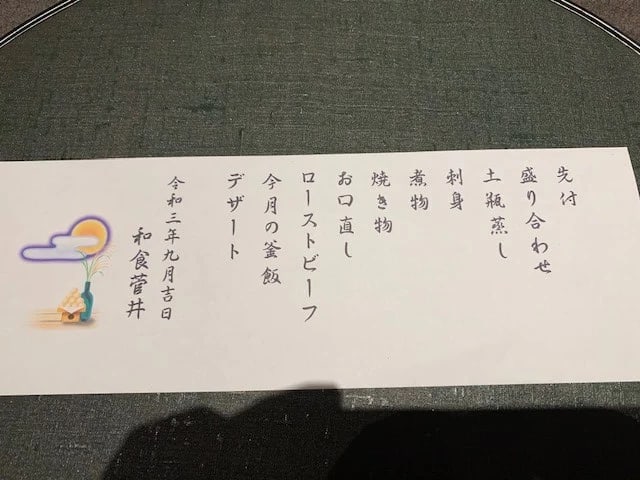 先付
盛り合わせ
土瓶蒸し
刺身
煮物
焼き物
お口直し
ローストビーフ
今月の釜飯
デザート
令和三年九月吉日
和食菅井